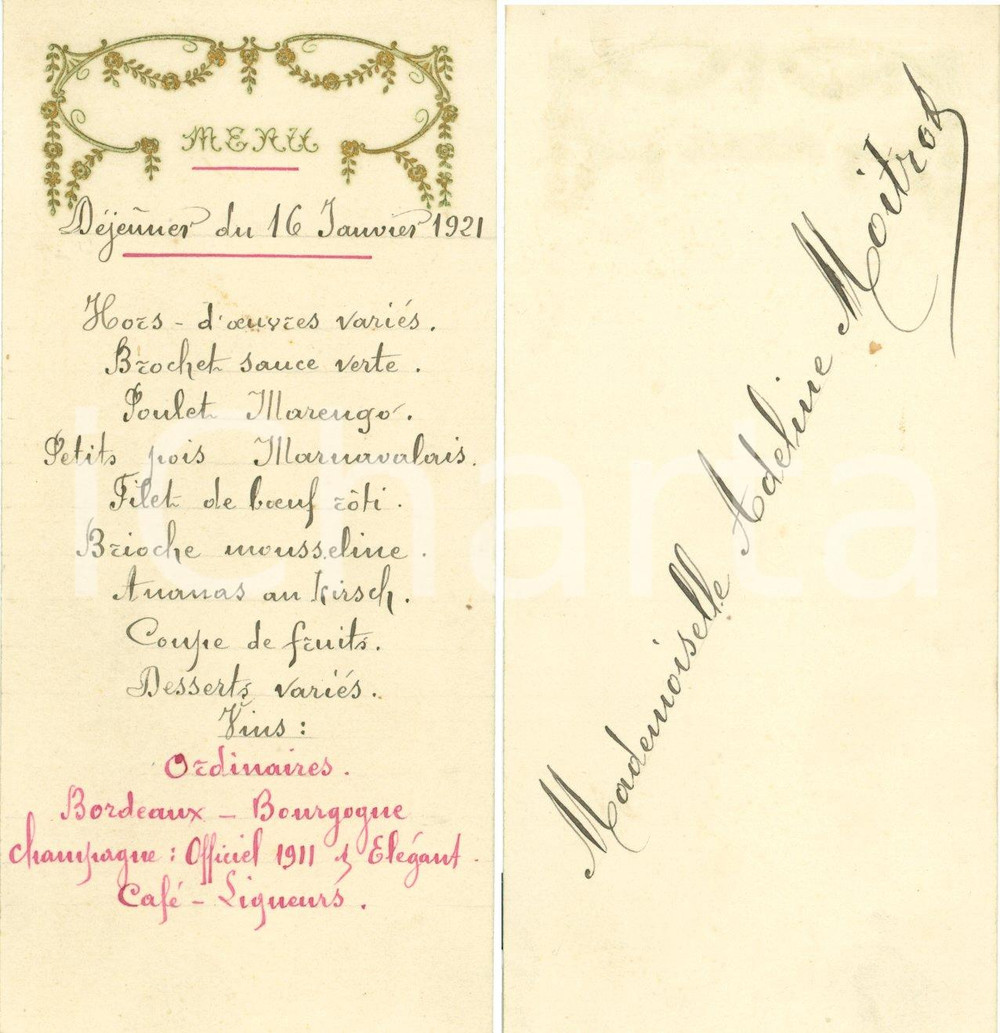 MENU
Déjeuner du 16 Janvier 1921
Hors-d'œuvres variés.
Brochet sauce verte.
Poulet Marengo.
Petits pois Marnavalais.
Filet de bœuf rôti.
Brioche mousseline.
Ananas au Kirsch.
Coupe de fruits.
Desserts variés.
Vins:
Ordinaires.
Bordeaux - Bourgogne
Champagne: Officiel 1911 & Elégant.
Café - Liqueurs.
Mademoiselle Adeline Moitrot
iCharta